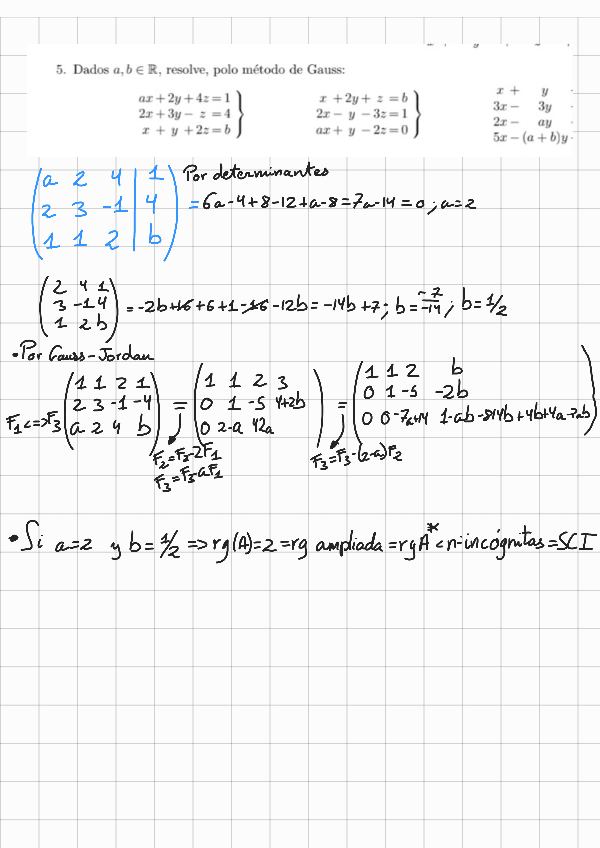 5. Dados a, b ∈ ℝ, resolve, polo método de Gauss:
ax + 2y + 4z = 1
2x + 3y − z = 4
x + y + 2z = b
x + 2y + z = b
2x − y − 3z = 1
ax + y − 2z = 0
x + y
3x − 3y
2x − ay
5x − (a + b)y
Por determinantes
a 2 4 | 1
2 3 -1 | 4
1 1 2 | b
= 6a-4+8-12+a-8=7a-14=0; a=2
2 4 1
3 -1 4
1 2 b
= -2b+16+6+1-16-12b=-14b+7; b=-7/-14; b=1/2
• Por Gauss-Jordan
F₁<=>F₃
1 1 2 1
2 3 -1 -4
a 2 4 b
=
1 1 2 3
0 1 -5 4+2b
0 2-a 42a
=
1 1 2 b
0 1 -5 -2b
0 0 -7a+14 1-ab-8+4b+4b+4a-7ab
F₂=F₃-2F₁
F₃=F₃-aF₁
F₃=F₃-(2-a)F₂
• Si a=2 y b=1/2 => rg(A)=2=rg ampliada=rgA*<n=incógnitas=SCI